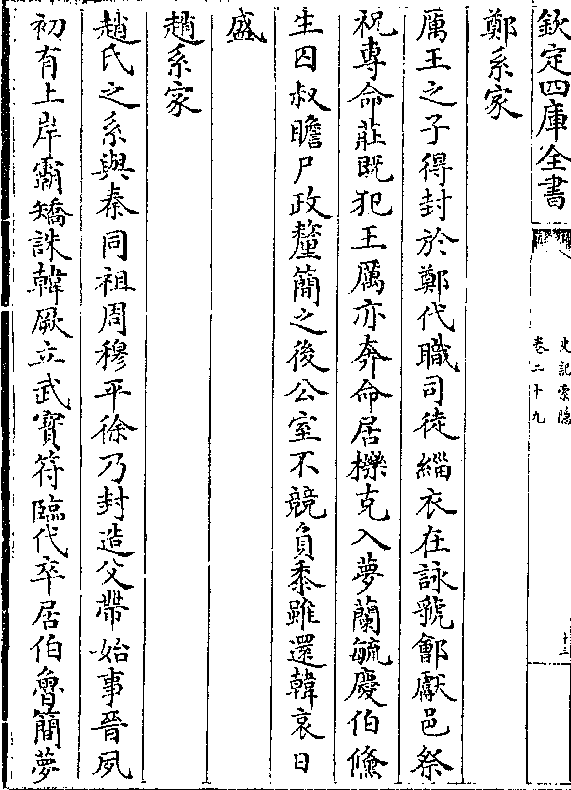 欽定四庫全書
史記索隱
卷二十九
鄭系家
厲王之子得封於鄭代職司徒緇衣在詠虢鄶獻邑祭
祝專命莊既犯王厲亦奔命居櫟克入夢蘭毓慶伯儵
生囚叔瞻尸政釐簡之後公室不競負黍雖還韓哀日
盛
趙系家
趙氏之系與秦同祖周穆平徐乃封造父帶始事晉夙
初有土岸霸矯誅韓厥立武寳符臨代卒居伯魯簡夢